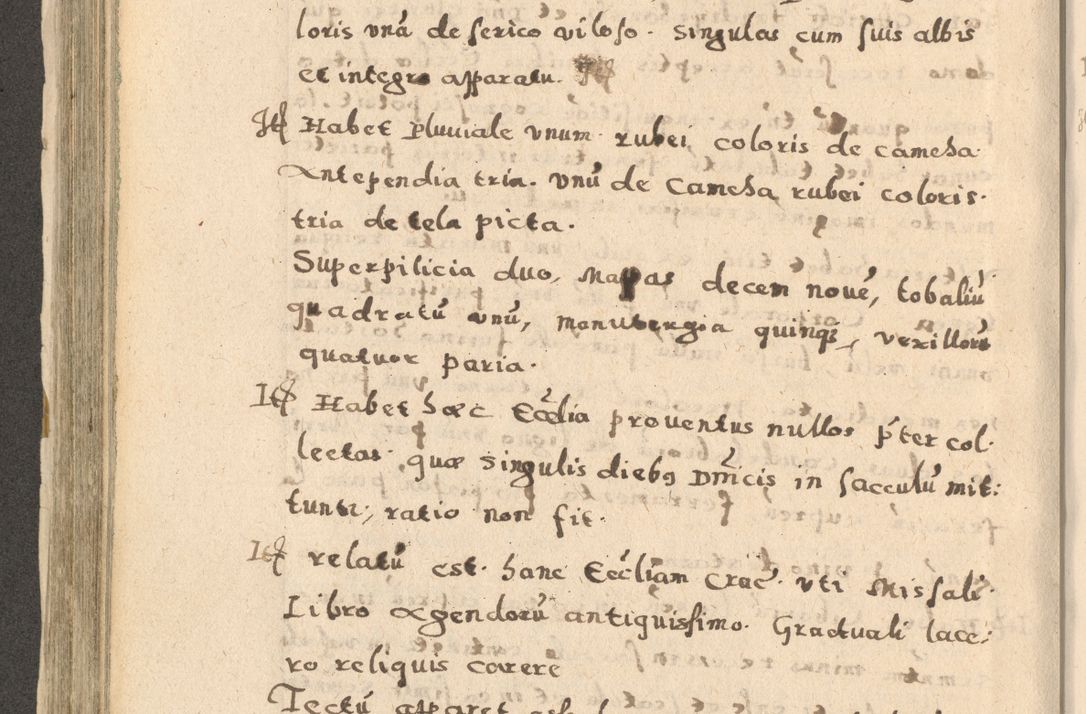 loris unā de serico viloso. Singulas cum suis albis
et integro apparatu.
Itē Habet Pluviale unum rubei coloris de camcha
Antependia tria. Unū de Camcha rubei coloris.
tria de tela picta.
Superpilicia duo, Mappas decem novē, tobaliū
quadratū unū, manutergia quinqȝ, vexillorū
quatuor paria.
Itē Habet hæc Eccłia proventus nullos p̄ter col-
lectas quæ Singulis diebȝ Dñicis in sacculū mit:
tuntr, ratio non fit.
Itē relatū est hanc Eccłiam crac. uti Missali
Libro agendorū antiquissimo. Graduali lace:
ro reliquis carere
Tectū apparet